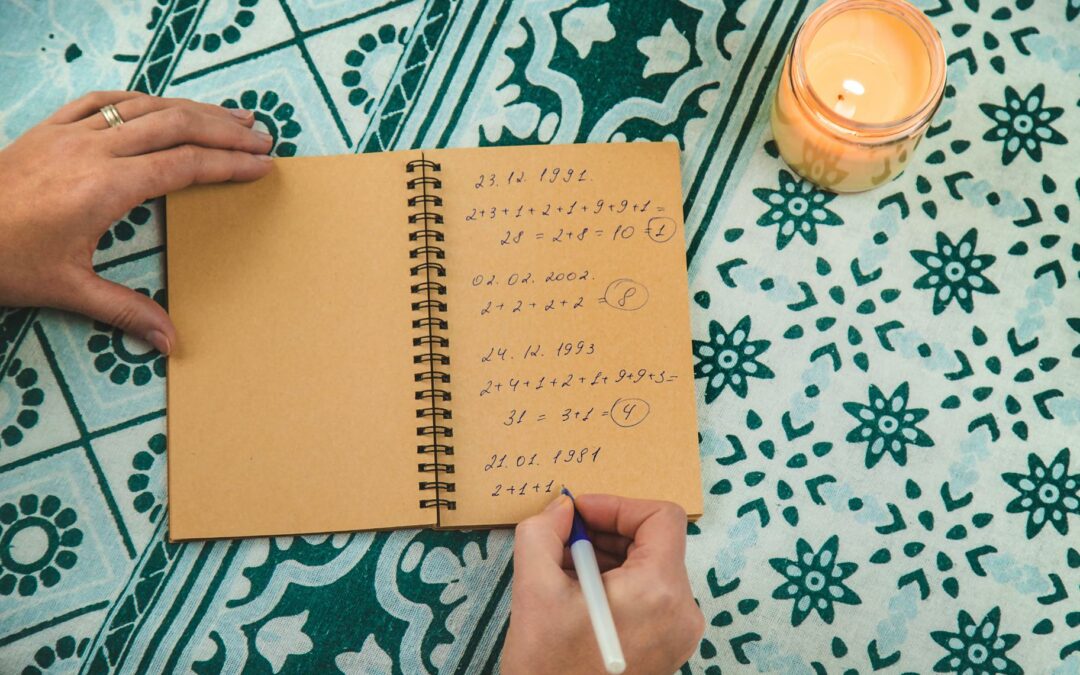 23.12.1991.
2+3+1+2+1+9+9+1=
28 = 2+8 = 10 = 1
02.02.2002.
2+2+2+2 = 8
24.12.1993
2+4+1+2+1+9+9+3=
31 = 3+1 = 4
21.01.1981
2+1+1